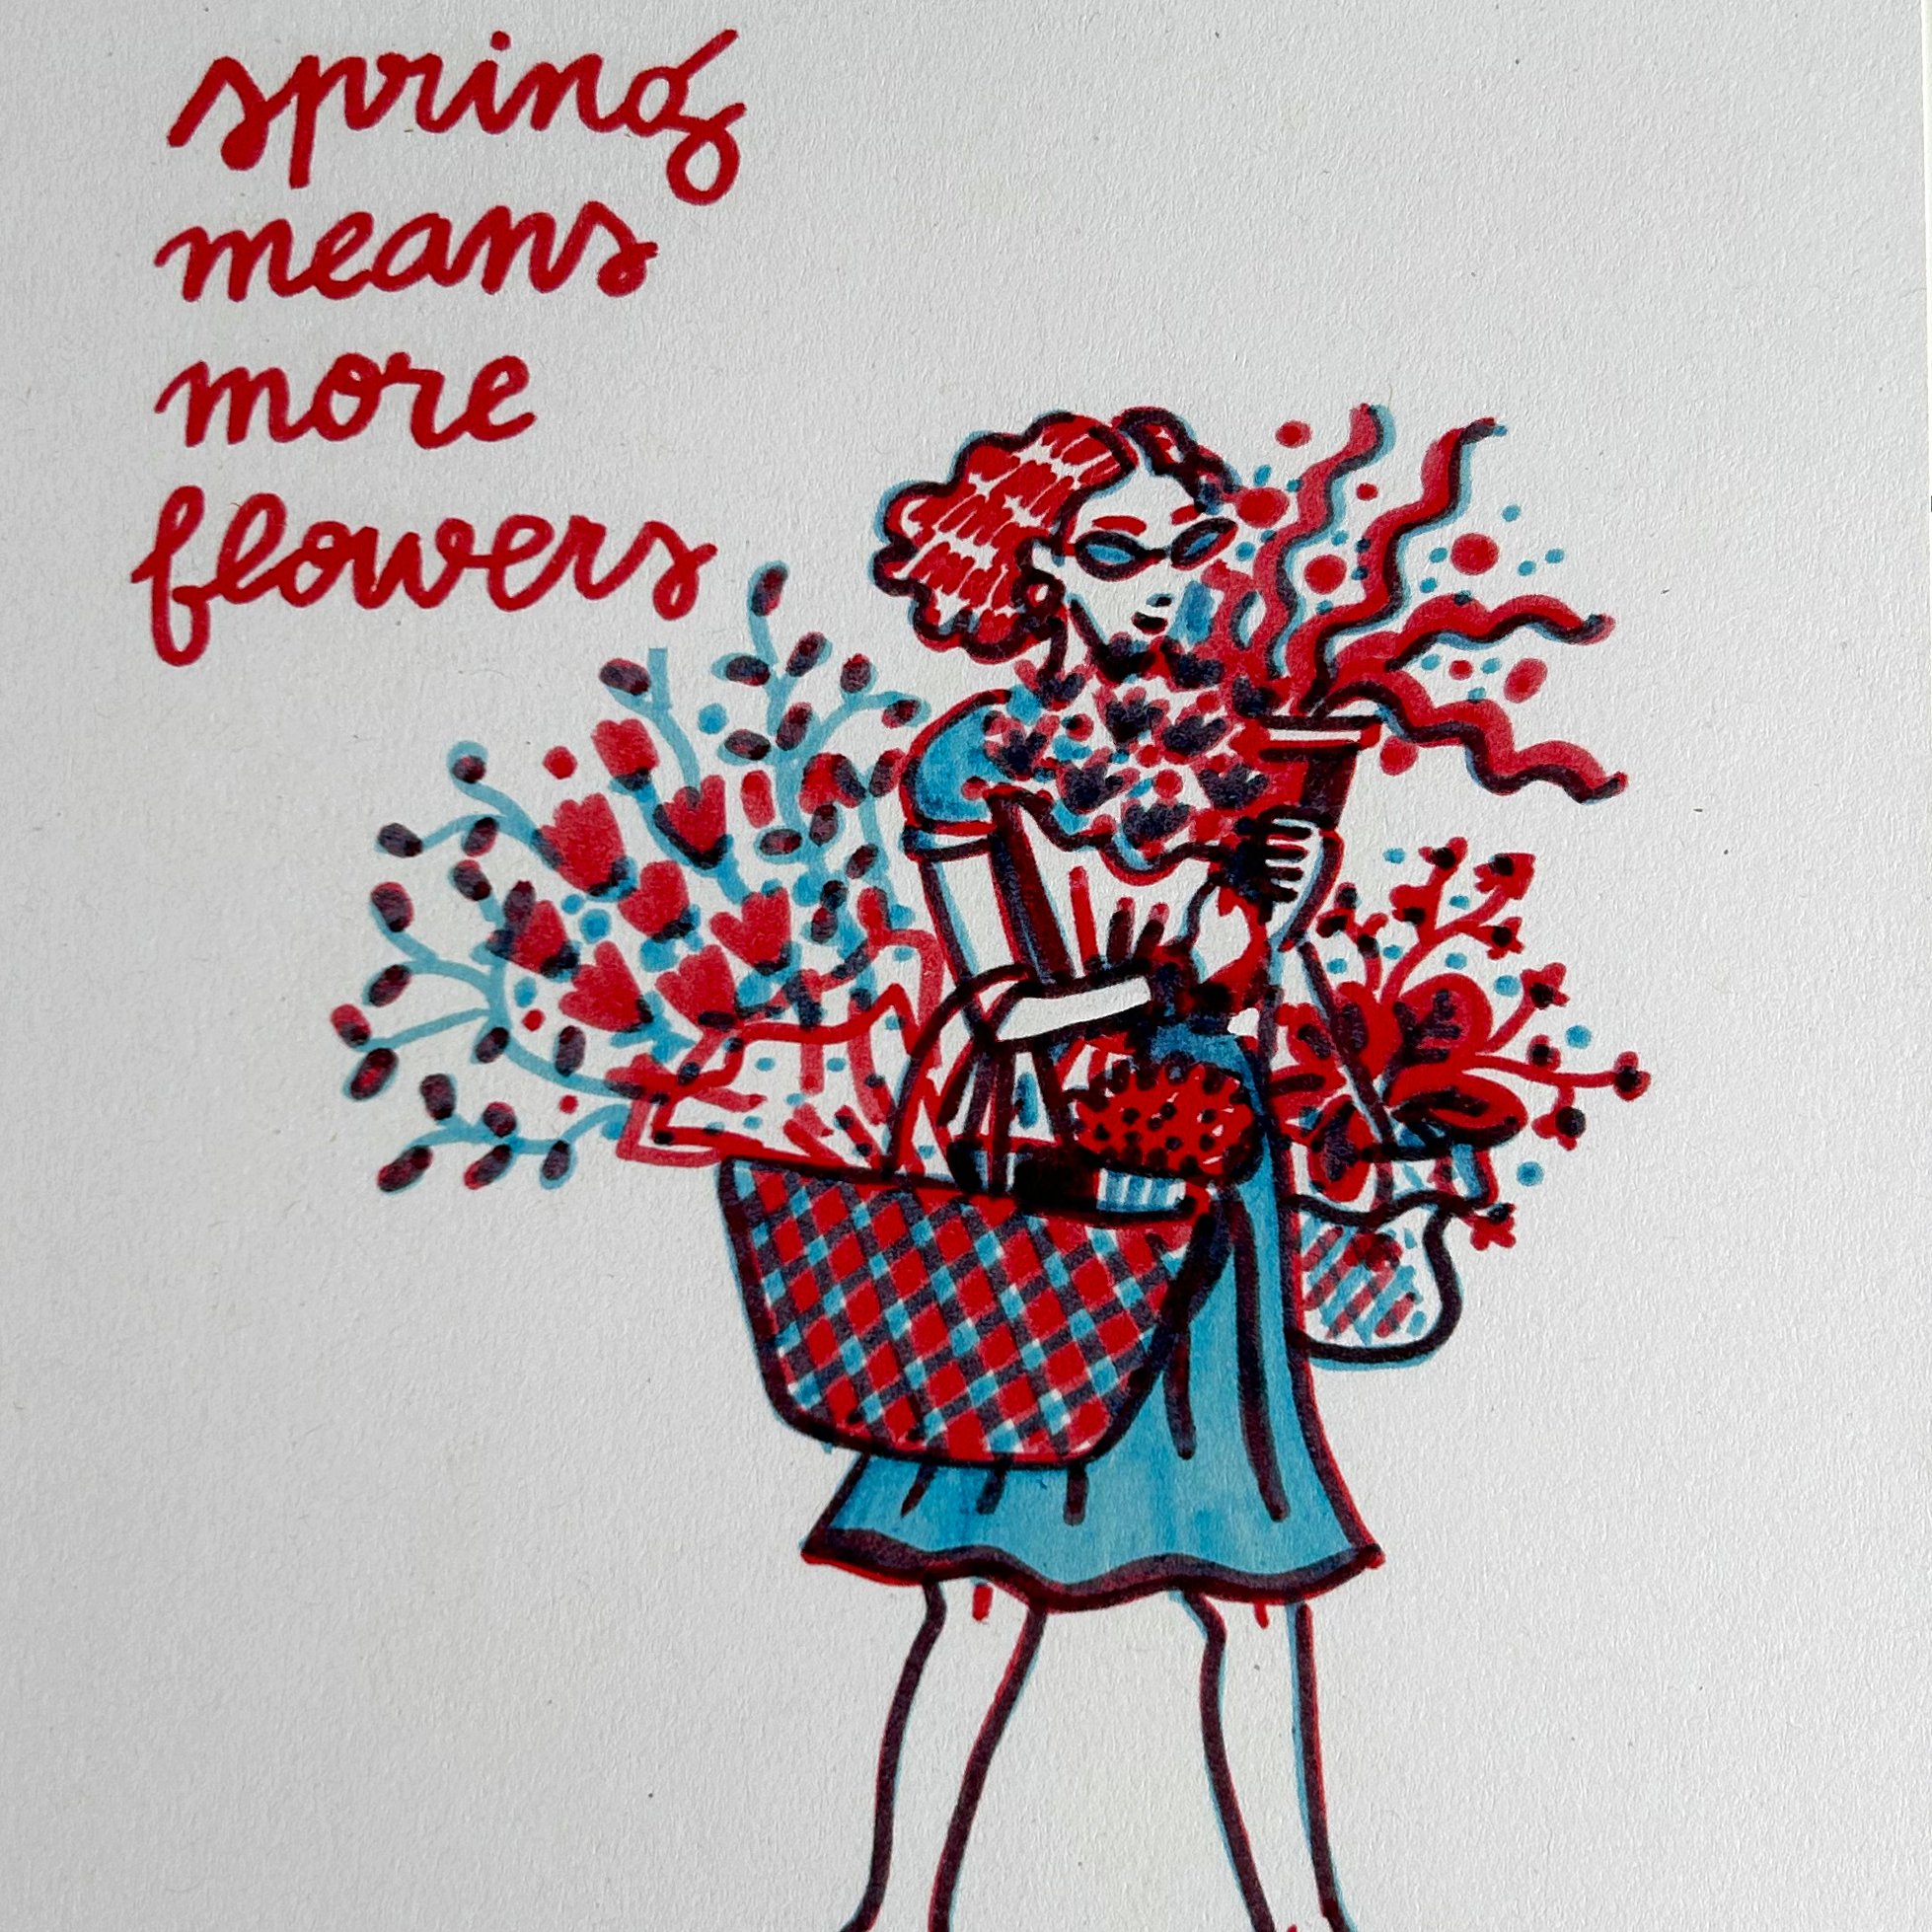 spring
means
more
flowers